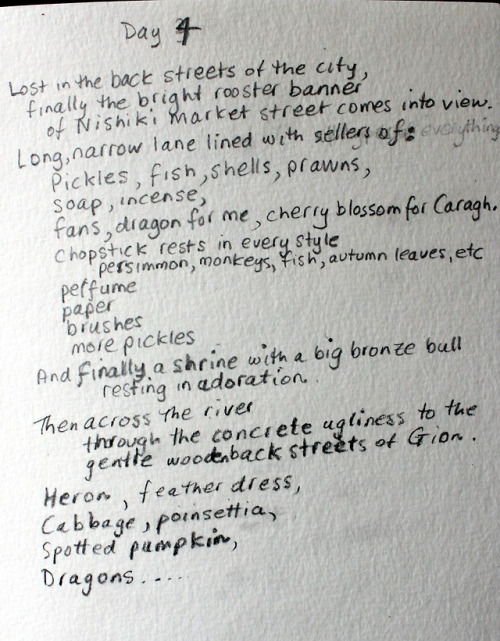 Day 4
Lost in the back streets of the city,
finally the bright rooster banner
of Nishiki market street comes into view.
Long, narrow lane lined with sellers of: everything
Pickles, fish, shells, prawns,
soap, incense,
fans, dragon for me, cherry blossom for Caragh.
Chopstick rests in every style
persimmon, monkeys, fish, autumn leaves, etc
perfume
paper
brushes
more pickles
And finally a shrine with a big bronze bull
resting in adoration.
Then across the river
through the concrete ugliness to the
gentle wooden back streets of Gion.
Heron, feather dress,
Cabbage, poinsettia,
Spotted pumpkin,
Dragons.....